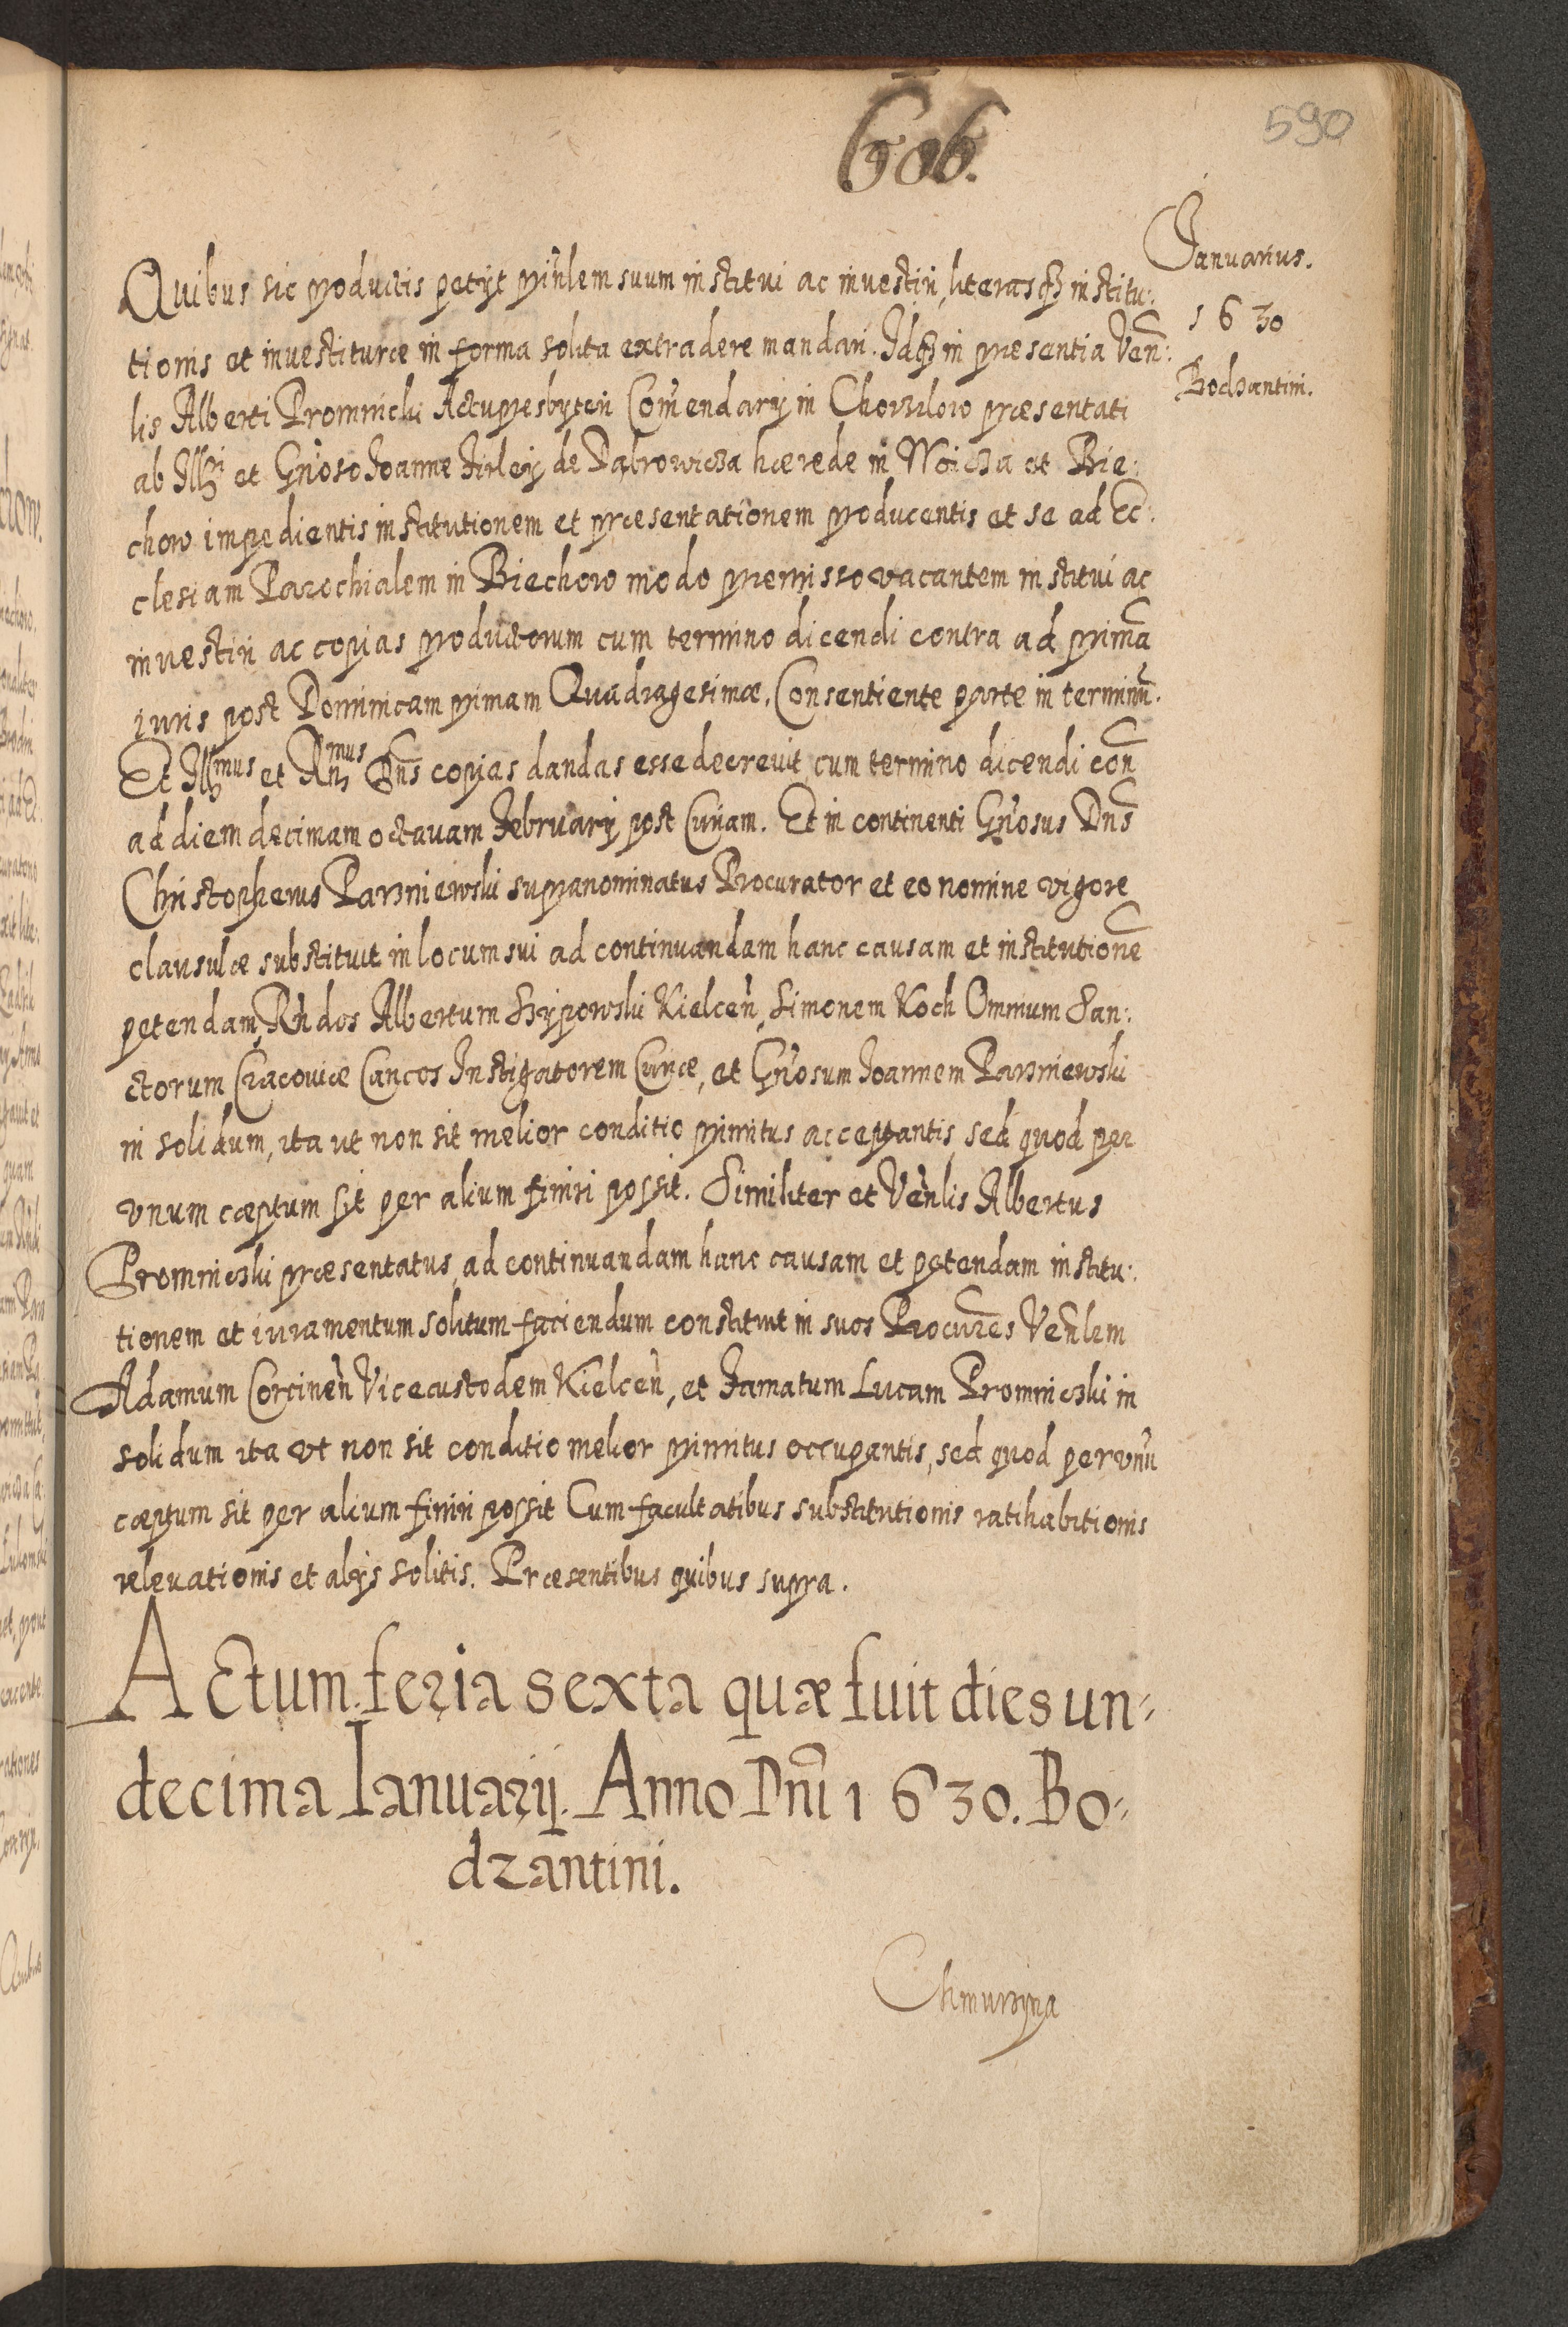 606.
590
Januarius.
1630
Bodzantini.
Quibus sic productis petÿt prińlem suum institui ac inuestiri, literasq₃ institu:
tionis et inuestituræ in forma solita extradere mandari. Idq₃ in præsentia Ven̄:
lis Alberti Promnicki Actupresbyteri Com̄endarÿ in præsentati
ab Illri et Gńoso Joanne Firleÿ de Dąbrowicza hærede in et Bie:
chow impedientis institutionem et præsentationem producentis et se ad Ec:
clesiam Parochialem in Biechow modo præmisso vacantem institui ac
inuestiri ac copias productorum cum termino dicendi contra ad primā
iuris post Dominicam primam Quadragesimæ. Consentiente parte in terminū.
Et Illmus et Rmus Dn̄s copias dandas esse decreuit, cum termino dicendi con̄
ad diem decimam octauam Februarÿ post Curiam. Et in continenti Gńosus Dn̄s
Christopherus Parzniewski supranominatus Procurator et eo nomine vigore
clausulæ substituit in locum sui ad continuandam hanc causam et institutionē
petendam, Rńdos Albertum Szÿpowski Kielceń, Simonem Koch Omnium San:
ctorum Cracouiæ Cancos Instigatorem Curiæ, et Gńosum Joannem Parzniewski
in solidum, ita ut non sit melior conditio primitus acceptantis, sed quod per
vnum cæptum sit per alium finiri possit. Similiter et Veńlis Albertus
Promniczki præsentatus, ad continuandam hanc causam et petendam institu:
tionem et iuramentum solitum faciendum constituit in suos Procūres Veńlem
Adamum Corcineń Vicecustodem Kielceń, et Famatum Lucam Promniczki in
solidum ita vt non sit conditio melior primitus occupantis, sed quod per vnū
cæptum sit per alium finiri possit Cum facultatibus substitutionis ratihabitionis
releuationis et alÿs solitis. Præsentibus quibus supra.
Actum feria sexta quæ fuit dies un-
decima Ianuarij. Anno Dn̄i 1630. Bo-
dzantini.